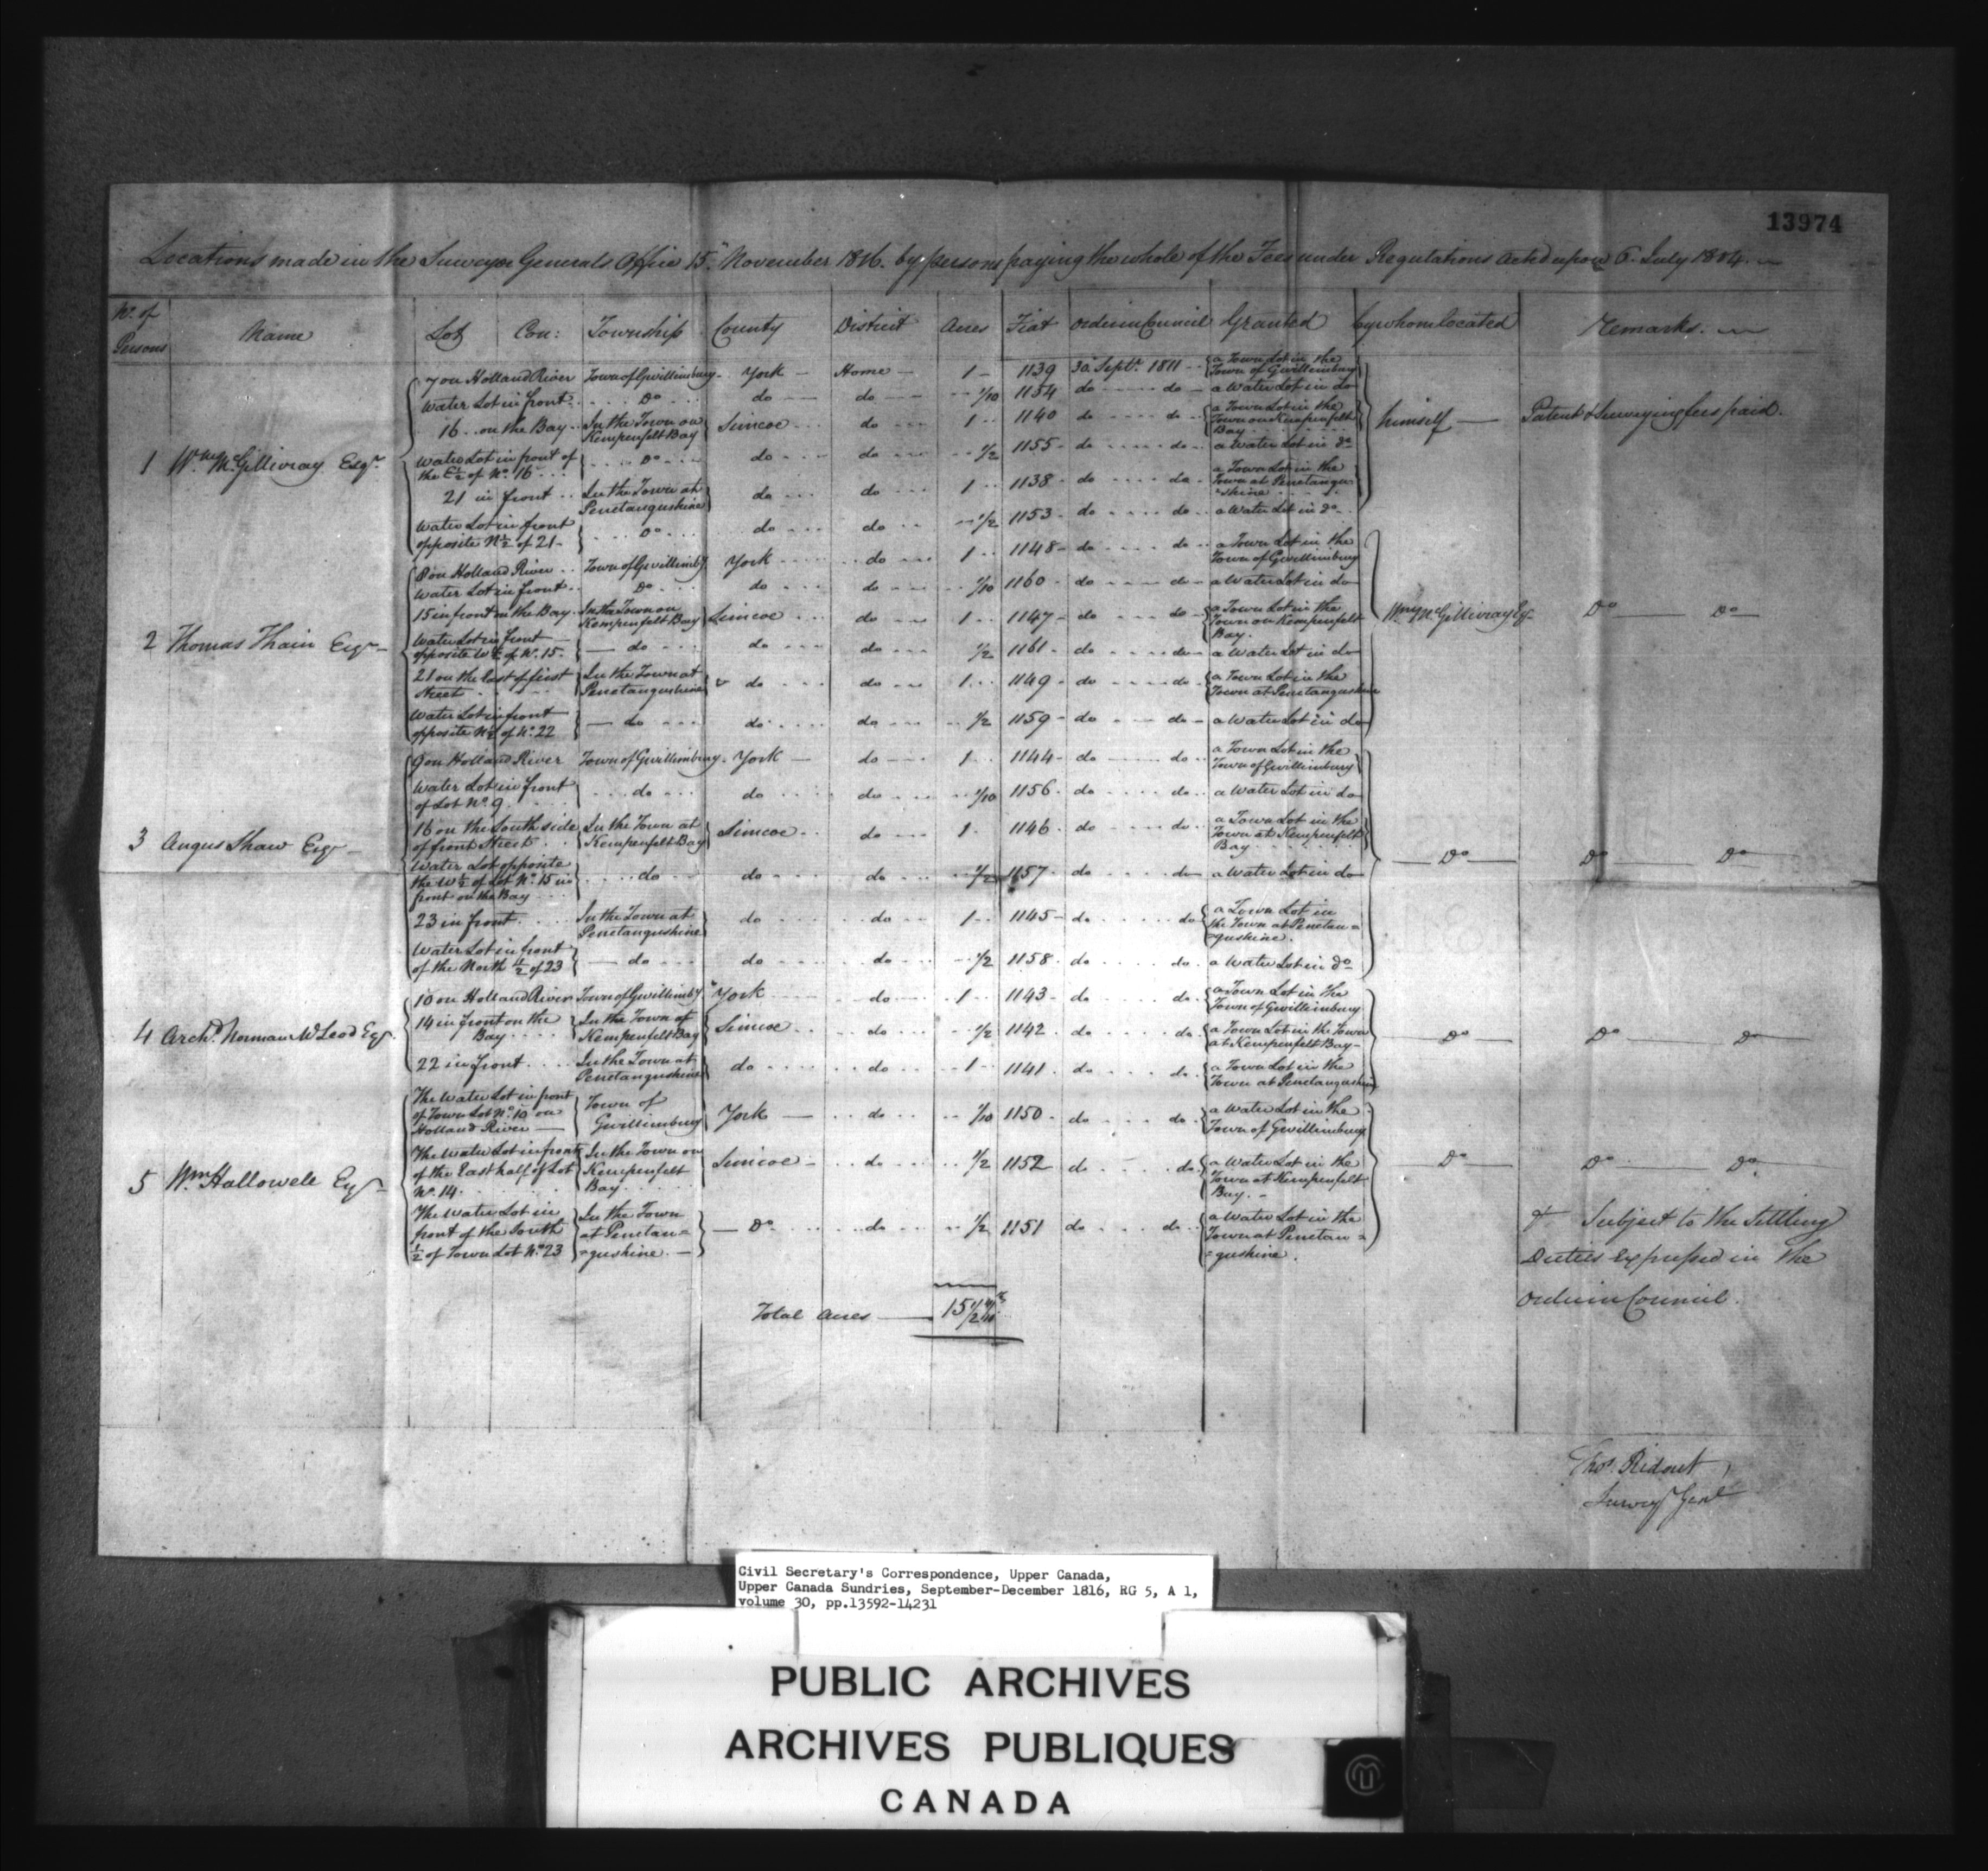 13974
Locations made in the Surveyor Generals Office 15th November 1816. by persons paying the whole of the Fees under Regulations acted upon 6. July 1804.
No. of Persons Name Lot Con: Township County District Acres Fiat Order in Council Granted by whom located Remarks.
1 Wm McGillivray Esqr
7 on Holland River Town of Gwillimbury York Home 1 1139 30 Septr 1811 a Town Lot in the Town of Gwillimbury himself Patent & Surveying fees paid.
Water Lot in front Do do do 1/10 1154 do do a Water Lot in do
16 on the Bay In the Town on Kempenfelt Bay Simcoe do 1 1140 do do a Town Lot in the Town on Kempenfelt Bay
Water Lot in front of the E½ of No 16 Do do do ½ 1155 do do a Water Lot in do
21 in front In the Town at Penetangushine do do 1 1138 do do a Town Lot in the Town at Penetangu=shine
Water Lot in front opposite N½ of 21 Do do do ½ 1153 do do a Water Lot in do
2 Thomas Thain Esqr
8 on Holland River Town of Gwillimby York do 1 1148 do do a Town Lot in the Town of Gwillimbury Wm McGillivray Esqr Do Do
Water Lot in front Do do do 1/10 1160 do do a Water Lot in do
15 in front on the Bay In the Town on Kempenfelt Bay Simcoe do 1 1147 do do a Town Lot in the Town on Kempenfelt Bay.
Water Lot in front opposite W½ of No. 15. do do do ½ 1161 do do a Water Lot in do
21 on the East of first Street In the Town at Penetangushine do do 1 1149 do do a Town Lot in the Town at Penetangushine
Water Lot in front opposite N½ of No. 22 do do do ½ 1159 do do a Water Lot in do
3 Angus Shaw Esqr
9 on Holland River Town of Gwillimbury York do 1 1144 do do a Town Lot in the Town of Gwillimbury Do Do Do
Water Lot in front of Lot No 9 do do do 1/10 1156 do do a Water Lot in do
16 on the South side of front Street In the Town at Kempenfelt Bay Simcoe do 1 1146 do do a Town Lot in the Town at Kempenfelt Bay
Water Lot opposite the W½ of Lot No. 15 in front on the Bay do do do ½ 1157 do do a Water Lot in do
23 in front In the Town at Penetangushine do do 1 1145 do do a Town Lot in the Town at Penetan=gushine.
Water Lot in front of the North ½ of 23 do do do ½ 1158 do do a Water Lot in do
4 Archd. Norman McLeod Esqr.
10 on Holland River Town of Gwillimby York do 1 1143 do do a Town Lot in the Town of Gwillimbury Do Do Do
14 in front on the Bay In the Town of Kempenfelt Bay Simcoe do ½ 1142 do do a Town Lot in the Town at Kempenfelt Bay
22 in front In the Town at Penetangushine do do 1 1141 do do a Town Lot in the Town at Penetangushine
5 Wm Hallowell Esqr
The Water Lot in front of Town Lot No. 10 on Holland River Town of Gwillimbury York do 1/10 1150 do do a Water Lot in the Town of Gwillimbury Do Do Do
The Water Lot in front of the East half of Lot No. 14 In the Town on Kempenfelt Bay Simcoe do ½ 1152 do do a Water Lot in the Town at Kempenfelt Bay.
The Water Lot in front of the South ½ of Town Lot No. 23 In the Town at Penetan=gushine. Do do ½ 1151 do do a Water Lot in the Town at Penetan=gushine.
& Subject to the Settling
Duties expressed in the
Order in Council.
Total Acres 15½
Thos. Ridout
Survey Genl
Civil Secretary's Correspondence, Upper Canada,
Upper Canada Sundries, September-December 1816, RG 5, A 1,
volume 30, pp.13592-14231
PUBLIC ARCHIVES
ARCHIVES PUBLIQUES
CANADA